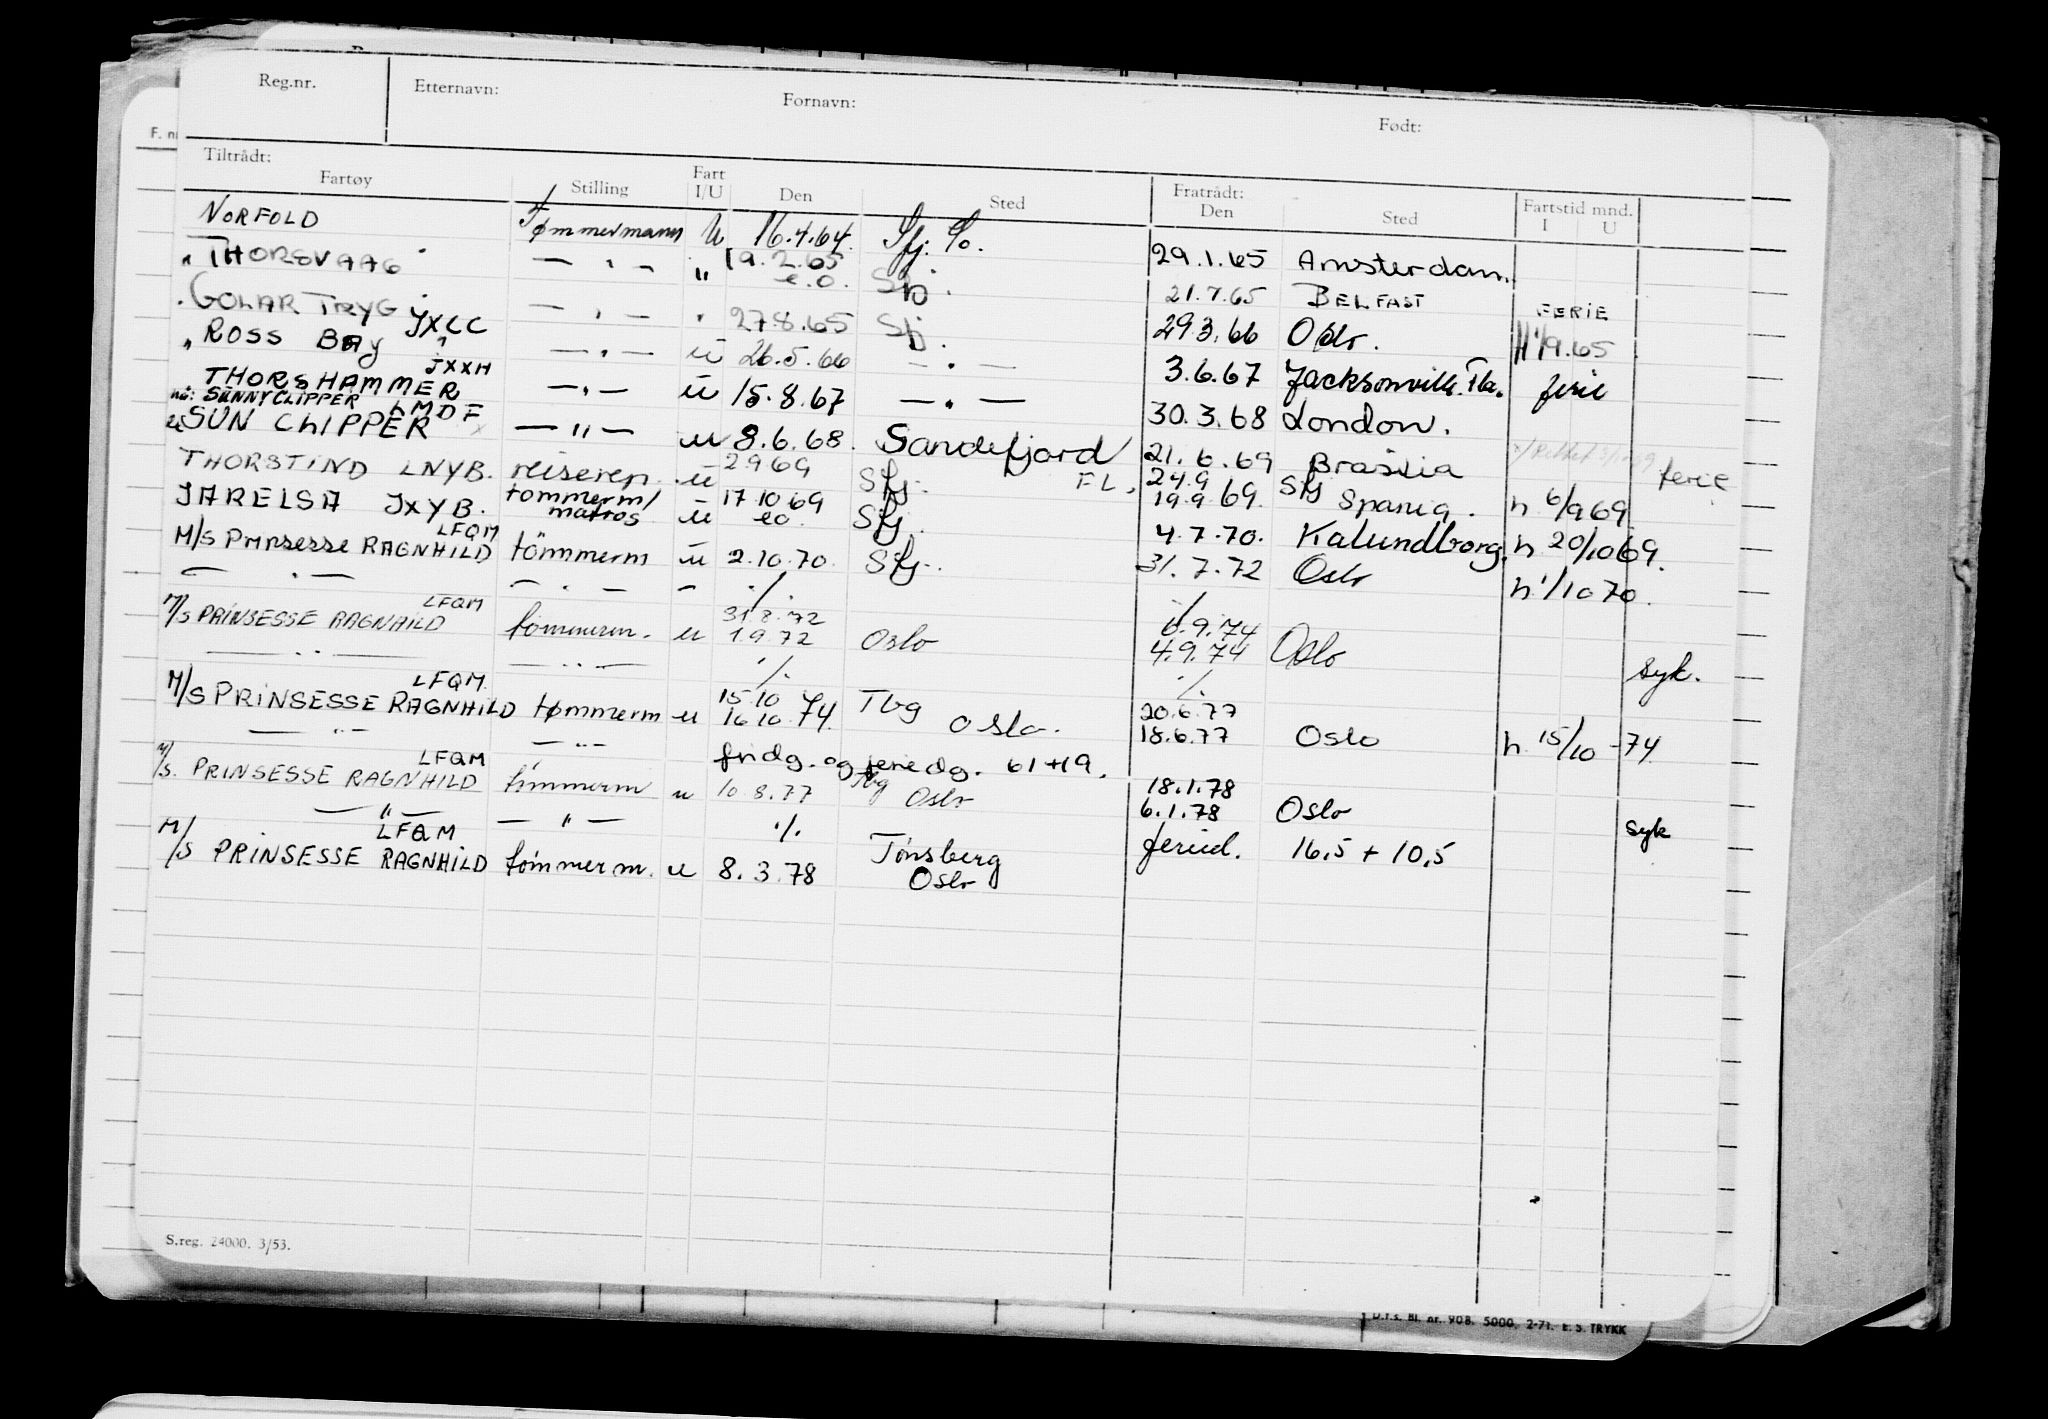 Reg.nr. Etternavn: Fornavn: Født:
Tiltrådt: Fratrådt: Fartstid mnd.
Fartøy Stilling Fart I/U Den Sted Den Sted I U
NORFOLD Tømmermann U 16.4.64. Sfj. 29.1.65 Amsterdam.
" THORSVAAG — " — " 19.2.65 e.o. Sfj. 21.7.65 BELFAST FERIE
" GOLAR TRYG JXCC — " — " 27.8.65 Sfj. 29.3.66 Oslo. 1/9.65
" ROSS BAY JXXH — " — u 26.5.66 — " — 3.6.67 Jacksonville. Fla. ferie
THORSHAMMER — " — u 15.8.67 — " — 30.3.68 London.
nå: SUNNYCLIPPER LMDF
SUN CLIPPER — " — u 8.6.68. Sandefjord 21.6.69 Brasilia ferie
THORSTIND LNYB. reiserep. u 2969 Sfj. FL. 24.9 19.9.69. Sfj Spania. n 6/9 69
JARELSA JXYB. tømmerm/ matros u 17.10.69 eo. Sfj. 4.7.70. Kalundborg. n 20/10 69.
LFQM
M/S Prinsesse RAGNHILD tömmerm u 2.10.70. Sfj. 31.7.72 Oslo n 1/10 70.
— " — — . — — ./. ./.
LFQM
M/S PRINSESSE RAGNHILD tømmerm. u 31.8.72 1.9.72 Oslo 6.9.74 4.9.74 Oslo syk.
— " — — " — ./. ./.
LFQM
M/S PRINSESSE RAGNHILD tømmerm u 15.10 16.10.74. Tbg Oslo. 20.6.77 18.6.77 Oslo n. 15/10 -74
— " — — " — fridg. og feriedg. 61+19.
LFQM
M/S. PRINSESSE RAGNHILD tömmerm u 10.8.77 Tbg Oslo 18.1.78 6.1.78 Oslo syk
— " — — " — ./. feried. 16,5 + 10,5
LFQM
M/S PRINSESSE RAGNHILD tömmerm. u 8.3.78 Tønsberg Oslo
S.reg. 24000. 3/53.
D.f.s. Bl. nr. 908. 5000. 2-71. E. S. TRYKK